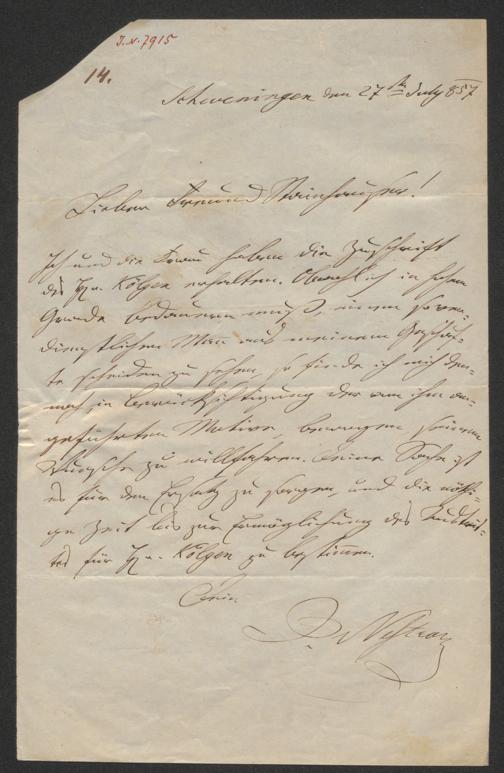 J.N. 7915
14.
Scheveningen den 27ten July 857
Lieber Freund Stainhauser!
Ich und die Frau haben die Zuschrift
des Hr. Kölgen erhalten. Obwohl ich in hohem
Grade bedauern muß, einen so ver-
dienstlichen Man aus meinem Geschäf-
te scheiden zu sehen, so finde ich mich den-
noch in Berücksichtigung der von ihm an-
geführten Motive, bewogen seinem
Wunsche zu willfahren. Deine Sache ist
es für den Ersatz zu sorgen, und die nöthi-
ge Zeit bis zur Ermöglichung des Austrit-
tes für Hr. Kölgen zu bestimmen.
Dein
J. Nestroy